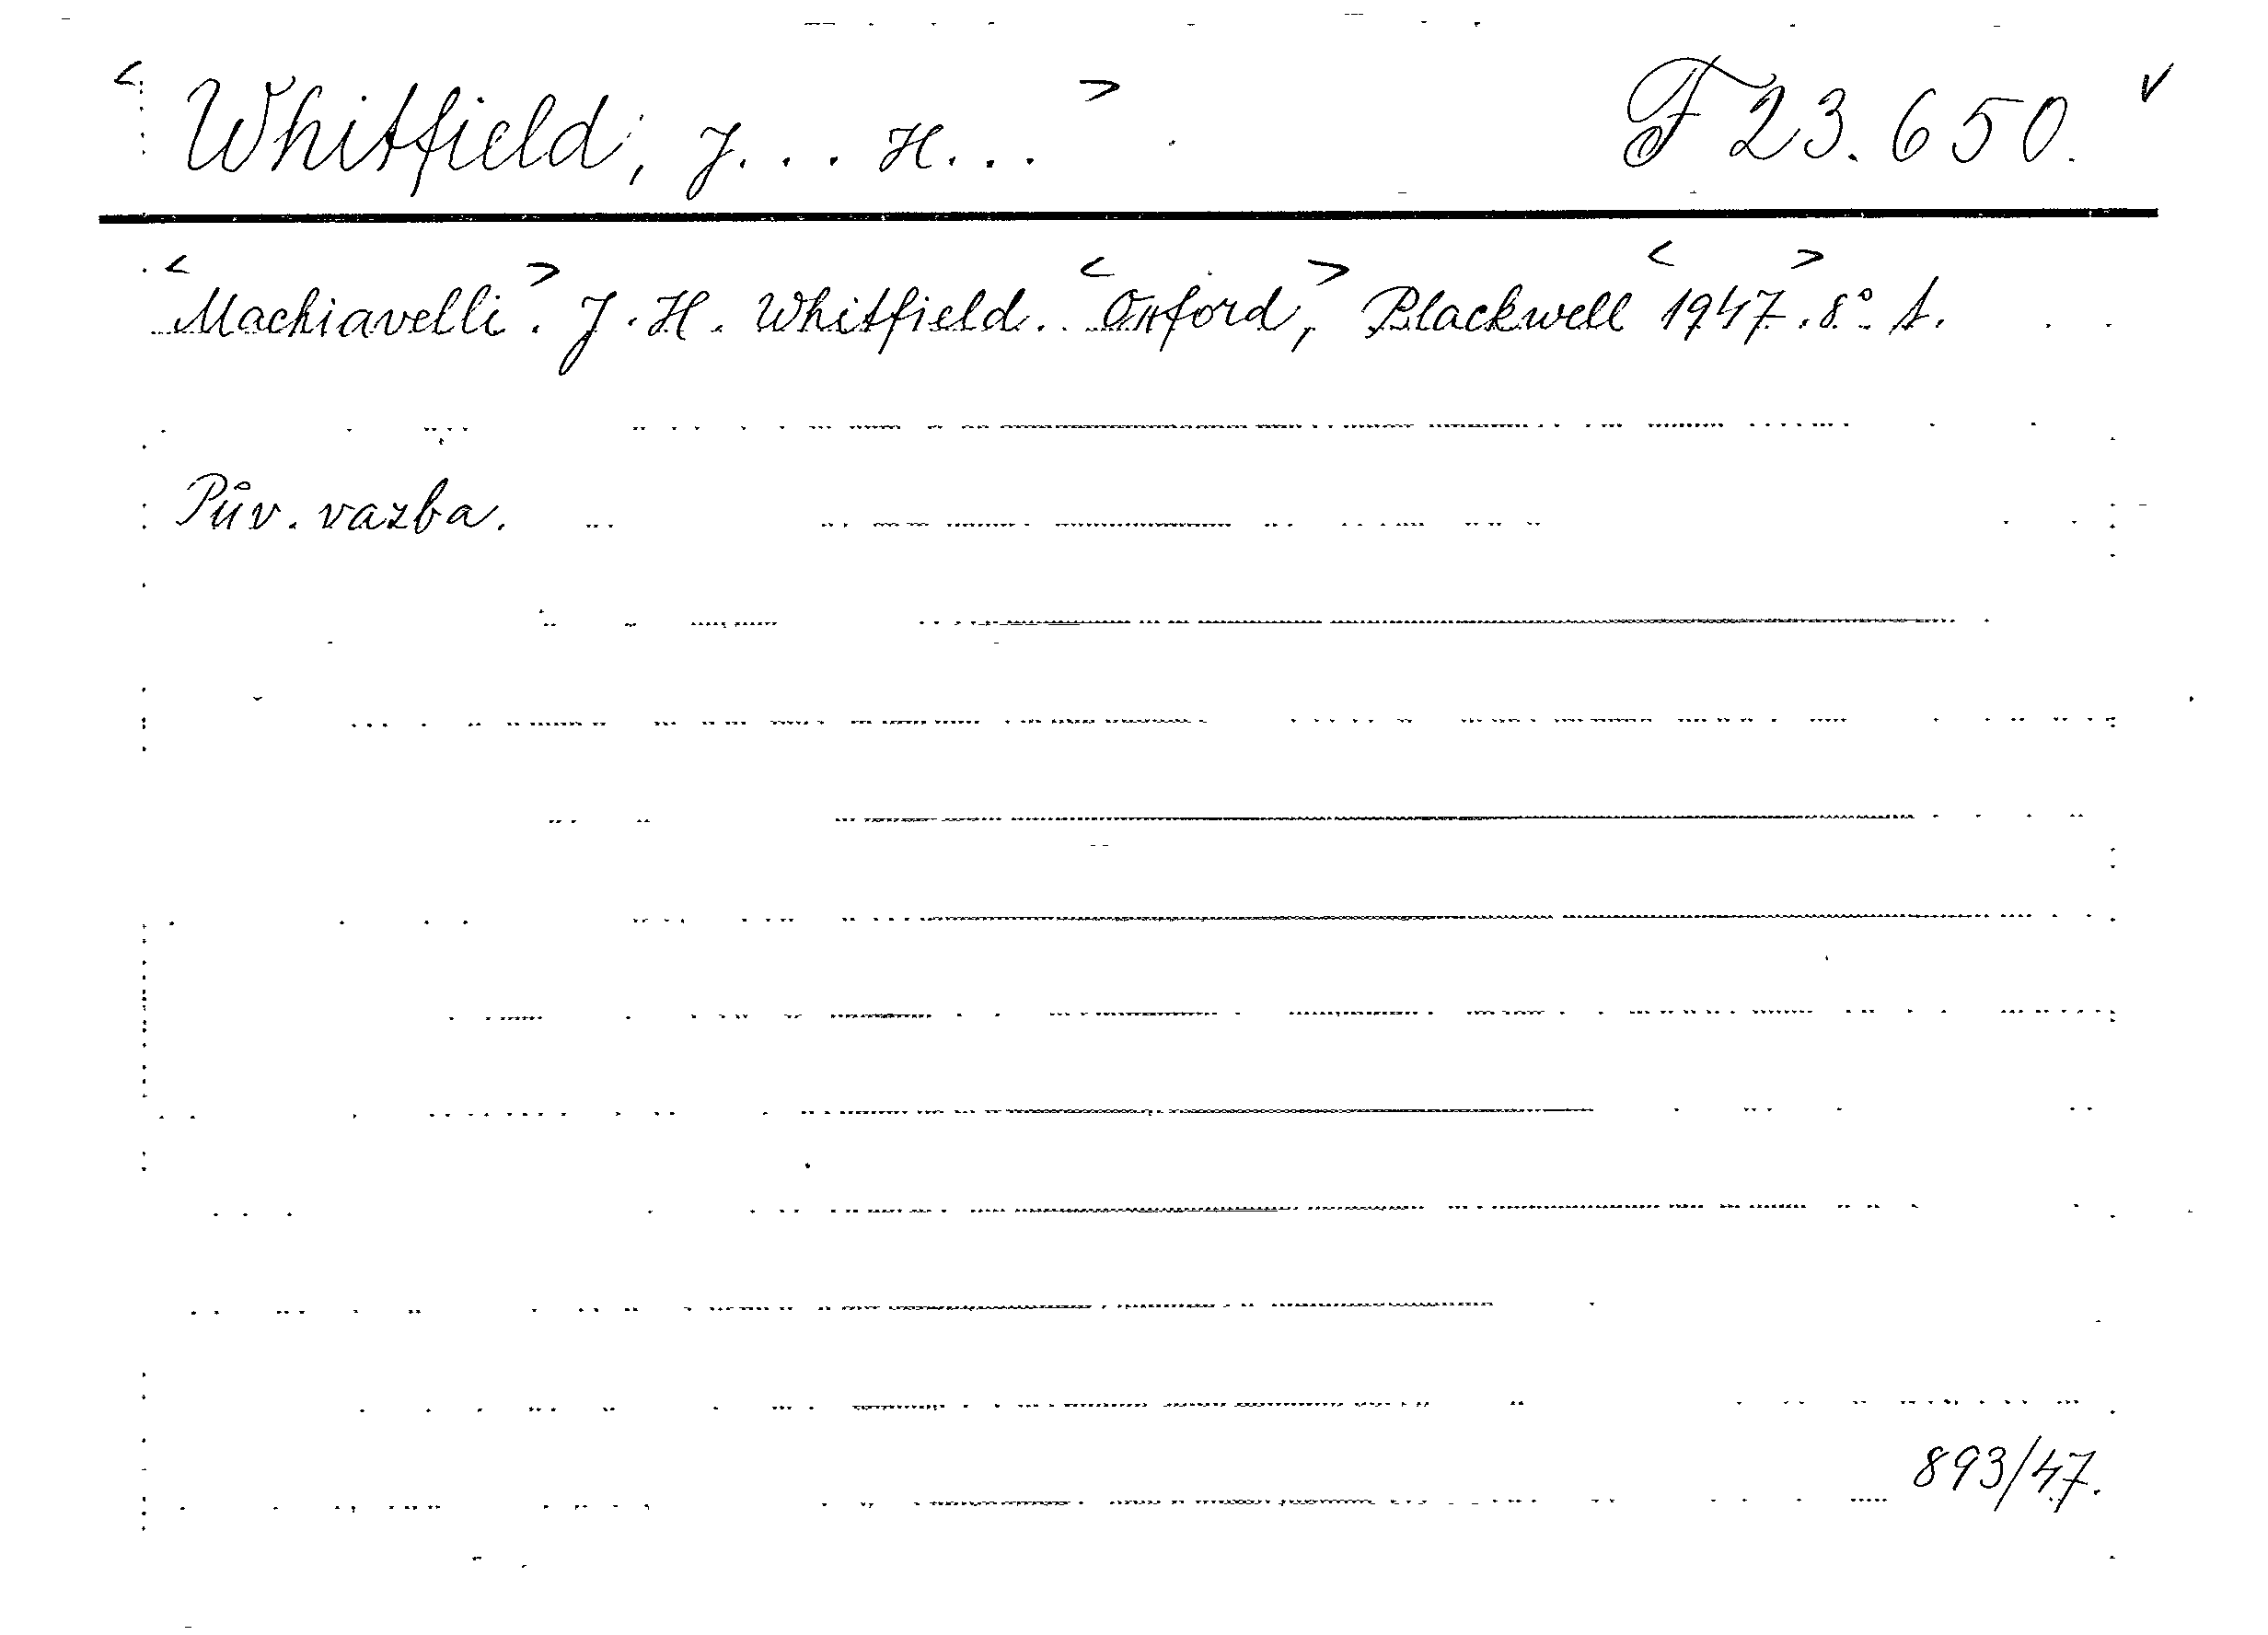 <Whitfield, J... H...> F 23.650. v
<Machiavelli>. J. H. Whitfield. <Oxford,> Blackwell <1947>. 8°. A.
Pův. vazba.
893/47.